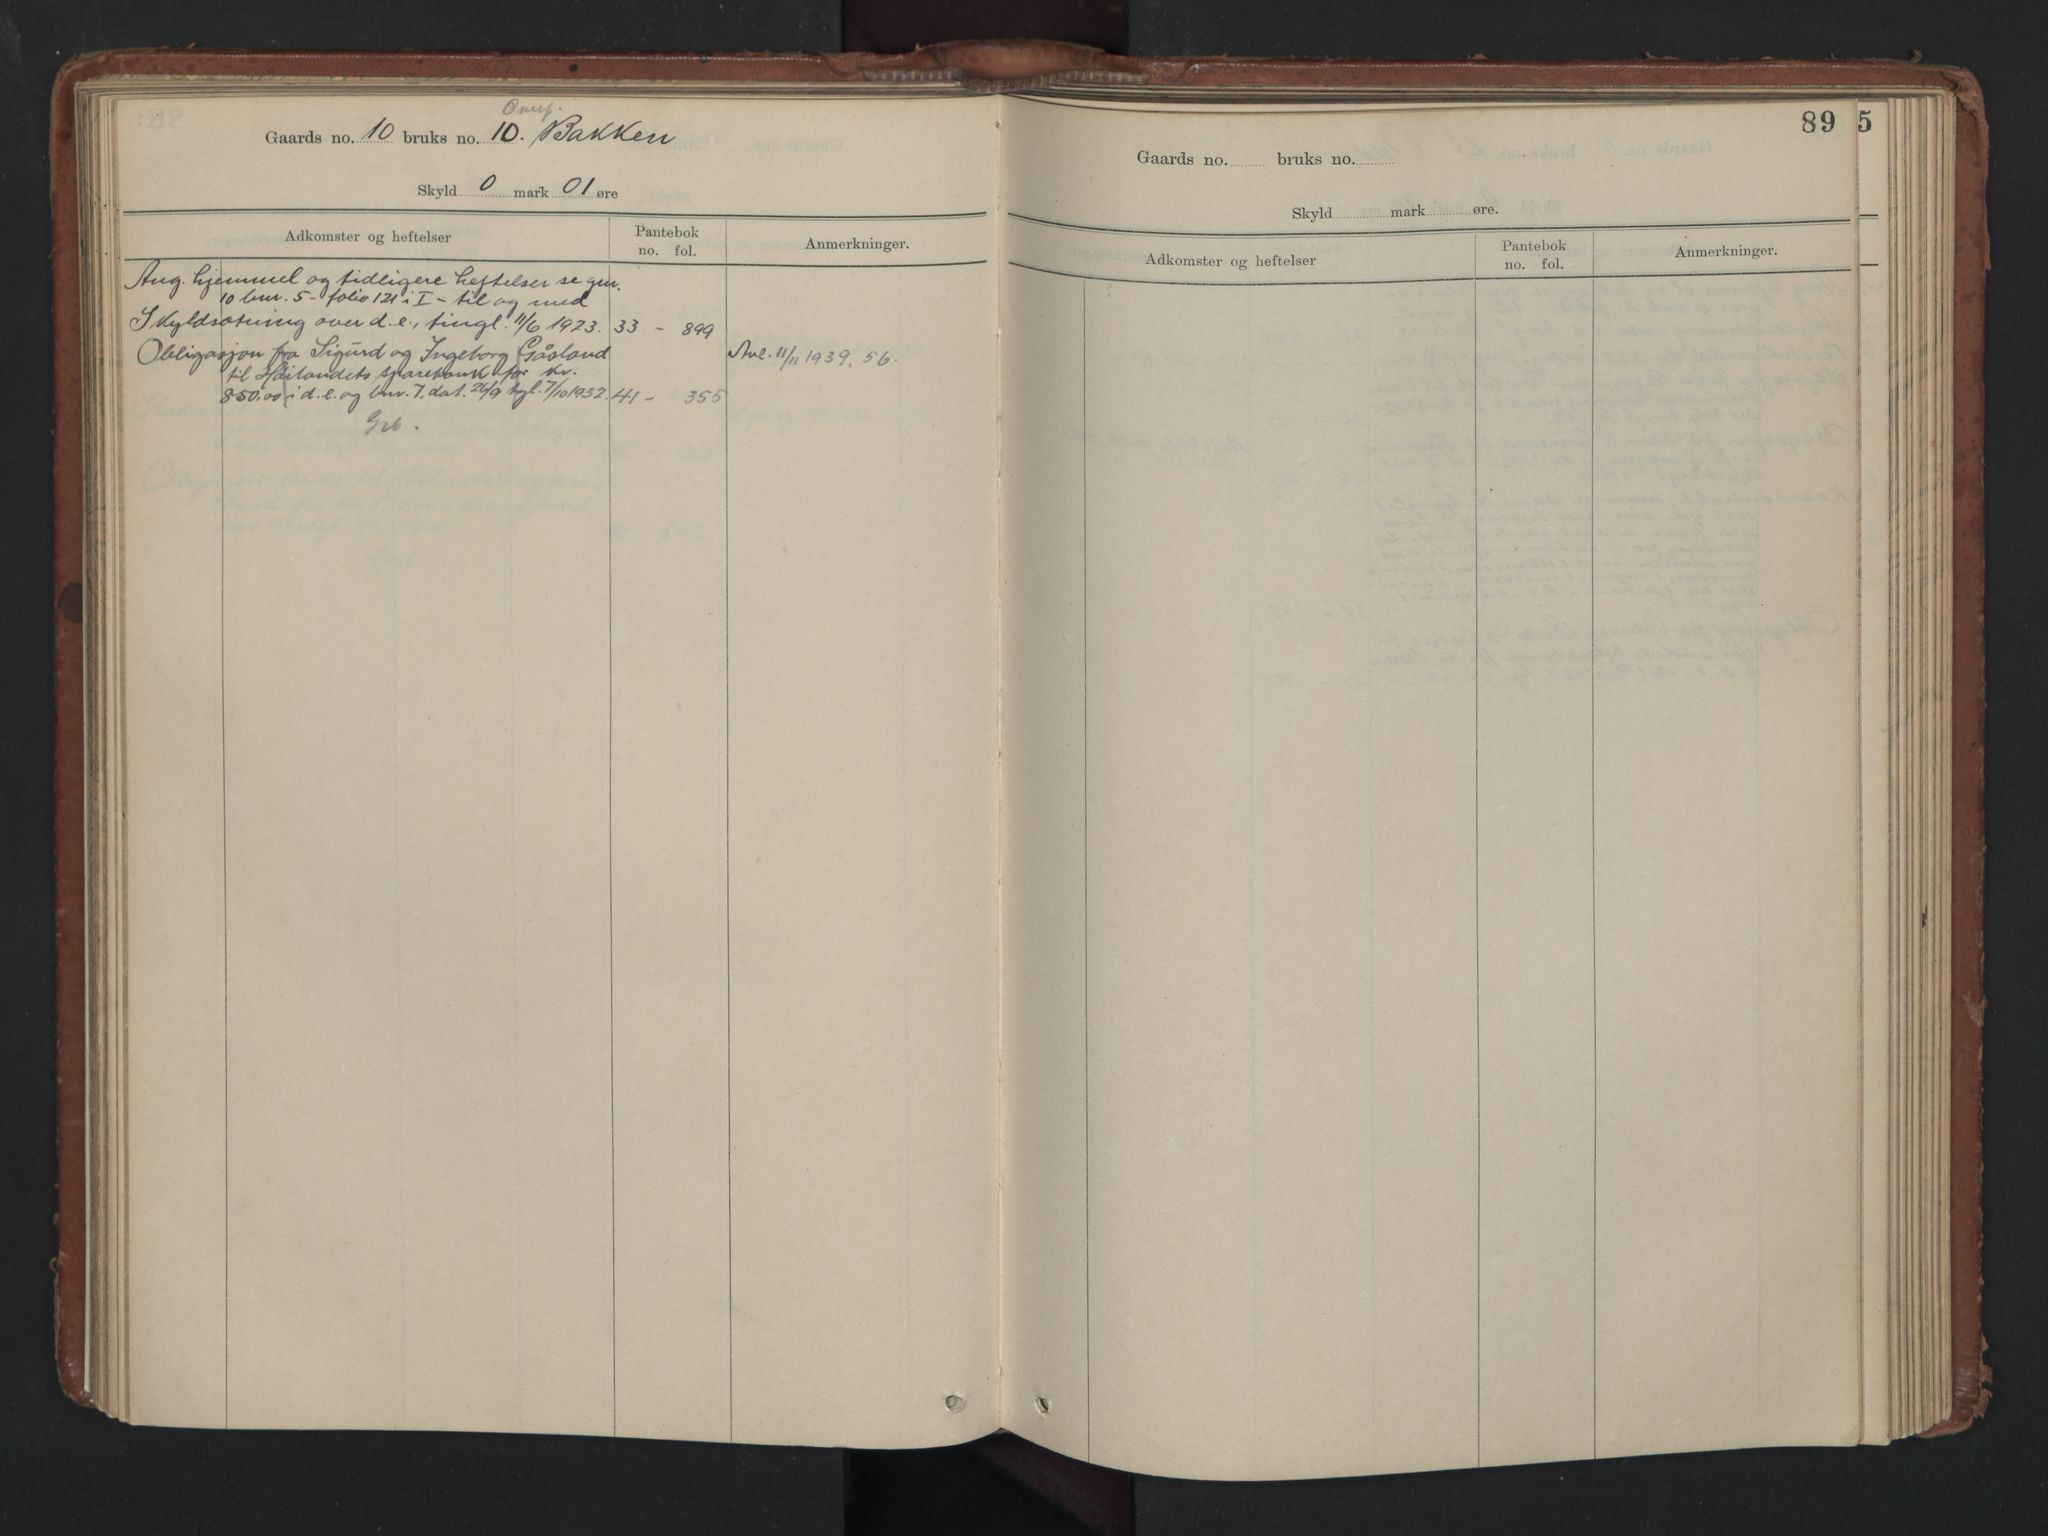 Overf.
Gaards no. 10 bruks no. 10. Bakken
Skyld 0 mark 01 øre
Adkomster og heftelser
Pantebok
no. fol.
Anmerkninger.
Ang. hjemmel og tidligere heftelser se gnr.
10 bnr. 5 - folio 121 i I - til og med
Skyldsætning over d.e., tingl. 11/6 1923. 33 - 899
Obligasjon fra Sigurd og Ingeborg Gåsland
Avl. 11/11 1939. 56.
til Høilandets sparebank for kr.
850,00 i d.e. og bnr. 7, dat. 26/9 tgl. 7/10 1932. 41 - 355
89
5
Gaards no. bruks no.
Skyld mark øre.
Adkomster og heftelser
Pantebok
no. fol.
Anmerkninger.